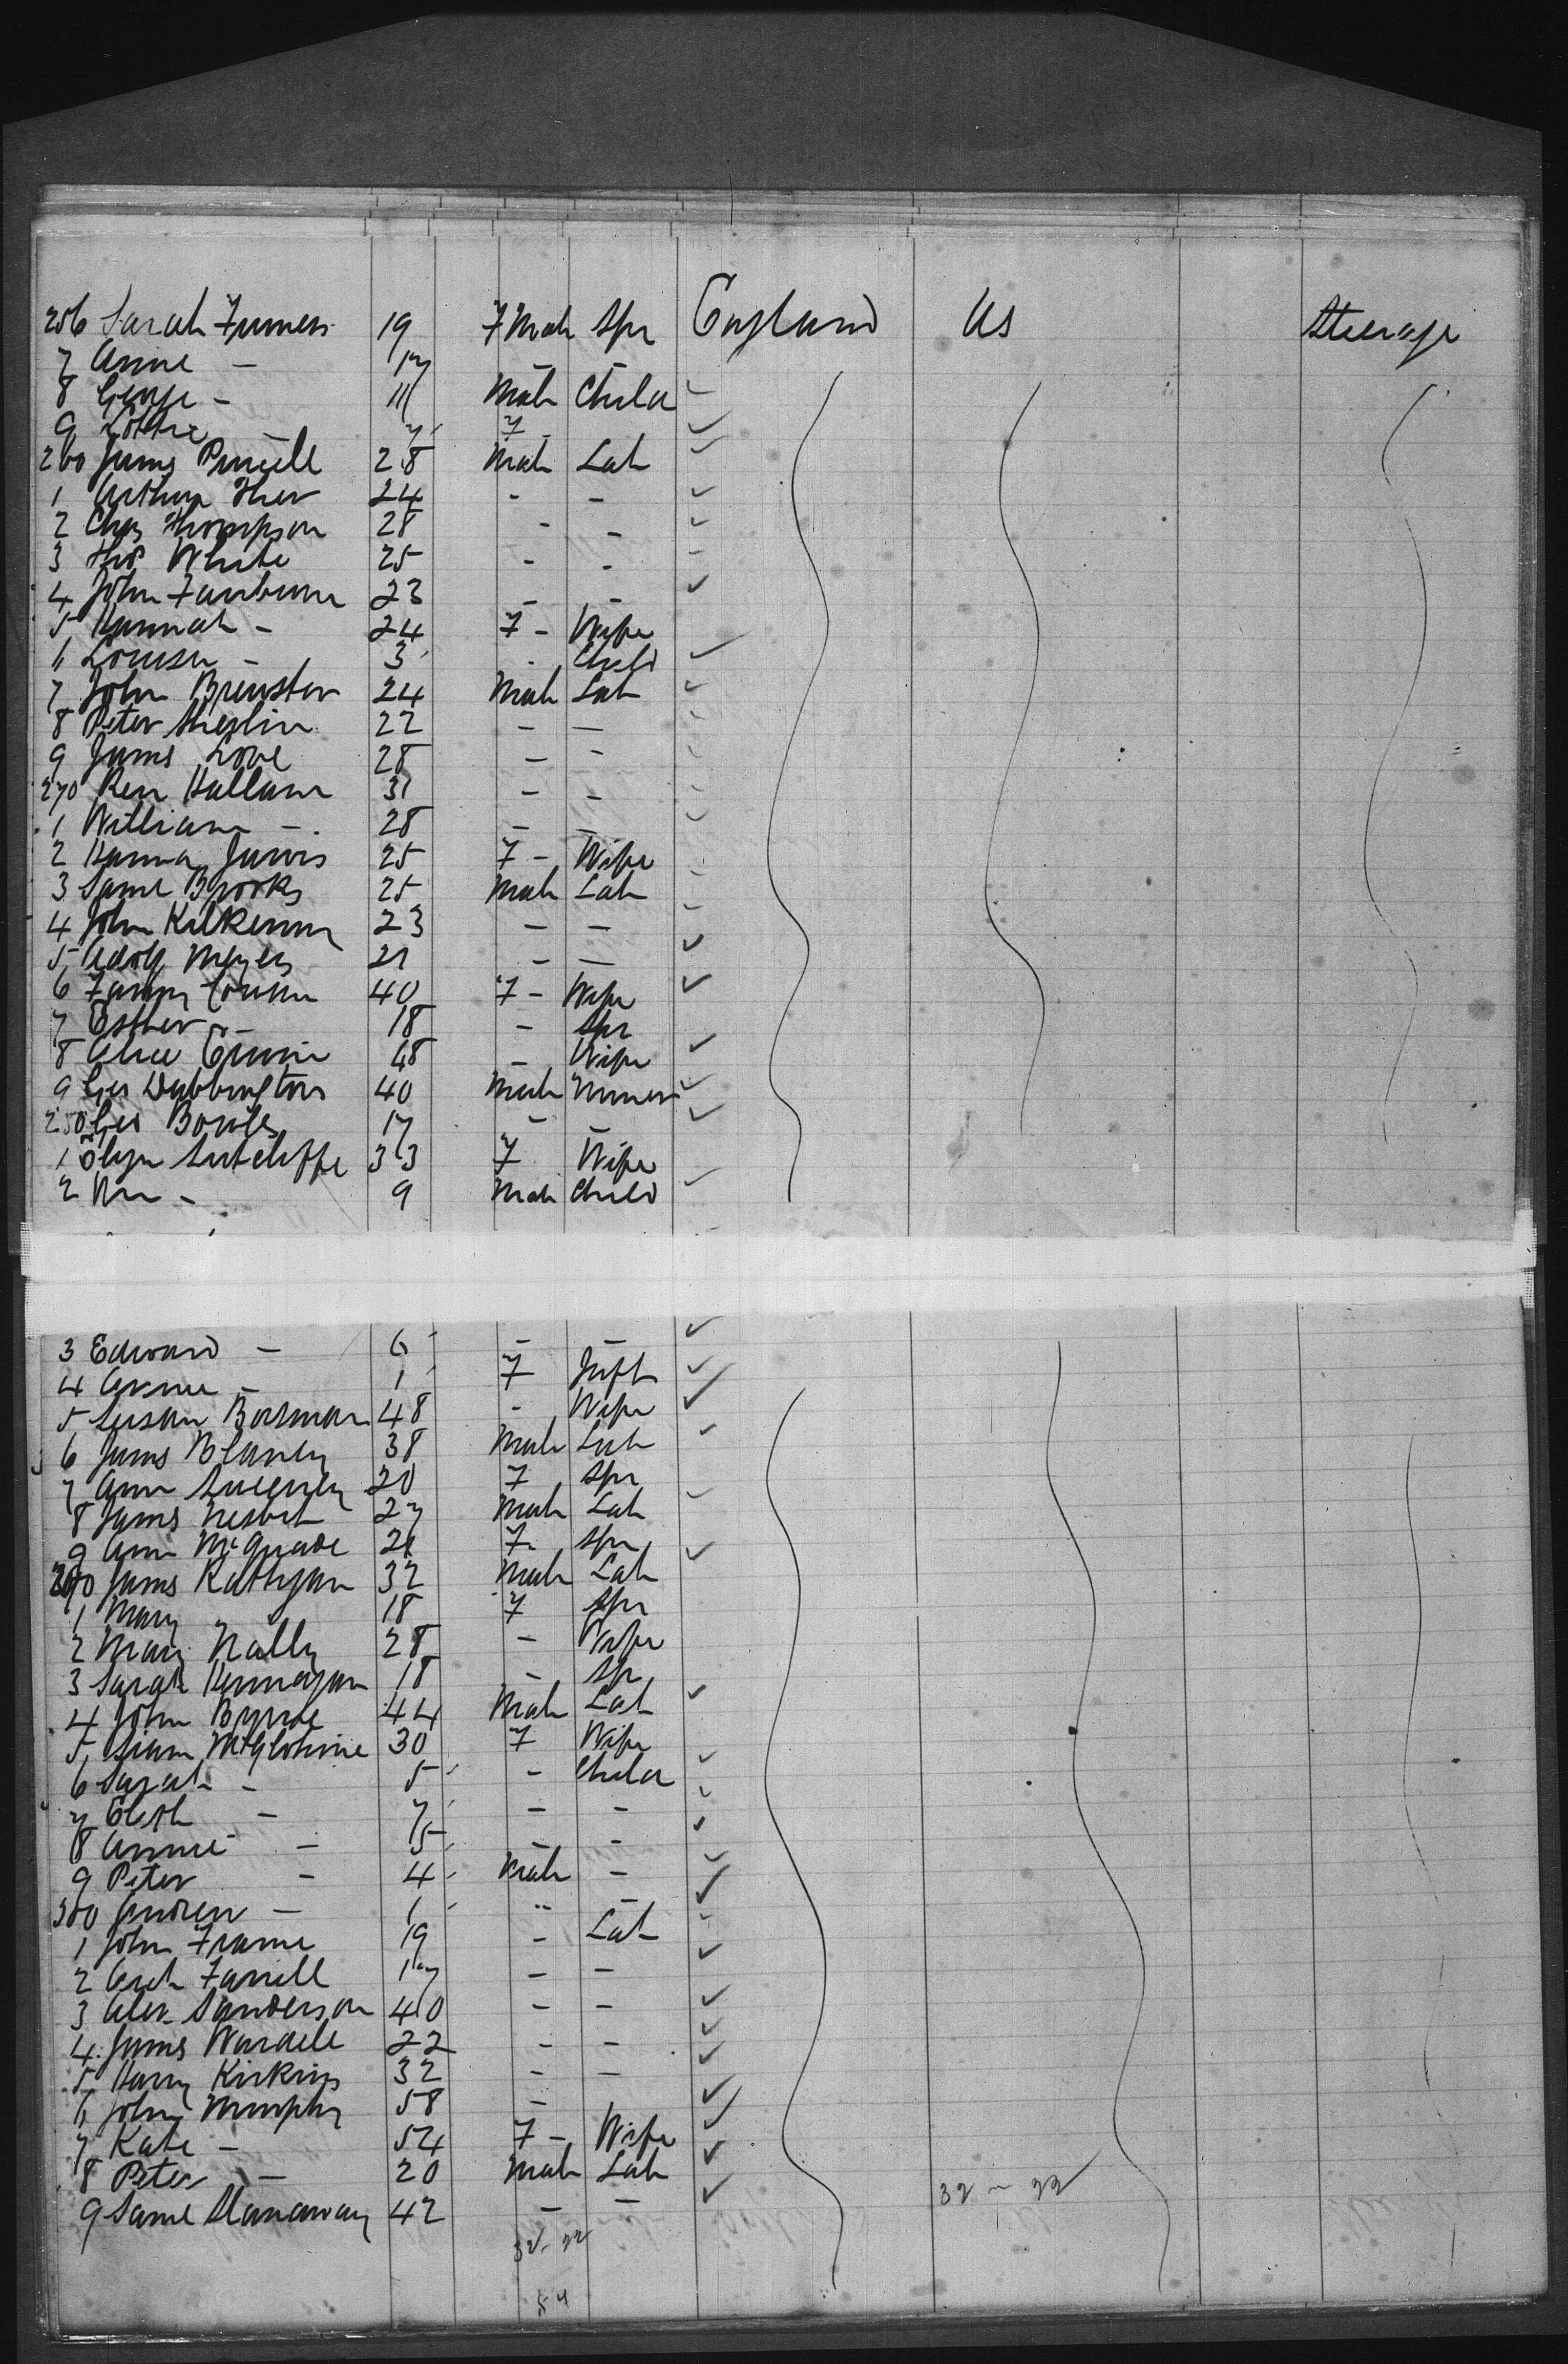 256 Sarah 19 F Male Spr England US Steerage
7 Annie - 17 - -
8 George - 11 Male Child
9 Lottie - 7 F -
260 James Purcell 28 Male Lab
1 Arthur 24 - -
2 Chas Thompson 28 - -
3 Thos White 25 - -
4 John Fairburn 23 - -
5 Hannah - 24 F - Wife
6 Louisa - 3 - Child
7 John Brewster 24 Male Lab
8 Peter 22 - -
9 James Love 28 - -
270 Hallam 31 - -
1 William - 28 - -
2 Hanna Jarvis 25 F - Wife
3 Saml Brooks 25 Male Lab
4 John Kilkenny 23 - -
5 Adolf Meyers 21 - -
6 Fanny 40 F - Wife
7 Esther - 18 - Spr
8 Alice 48 - Wife
9 Geo Dubbington 40 Male Miner
280 Geo Bowles 17 - -
1 Sutcliffe 33 F Wife
2 Wm - 9 Male Child
3 Edward - 6 - -
4 Annie - 1 F Inft
5 Susan 48 - Wife
6 James Blaney 38 Male Lab
7 Ann Sweeney 20 F Spr
8 James Nesbit 27 Male Lab
9 Ann McQuade 21 F Spr
290 James 32 Male Lab
1 Mary 18 F Spr
2 Mary Nally 28 - Wife
3 Sarah 18 - Spr
4 John Byrne 44 Male Lab
5 McGlohine 30 F Wife
6 Sarah - 5 - Child
7 Elsth - 7 - -
8 Annie - 5 - -
9 Peter - 4 Male -
300 Andrew - 1 " -
1 John Frame 19 - Lab
2 Arch Farrell 17 - -
3 Alex Sanderson 40 - -
4 James Wardell 22 - -
5 Harry Kirkins 32 - -
6 John Murphy 58 -
7 Kate - 54 F - Wife
8 Peter - 20 Male Lab
9 Saml Hanaway 42 - -
32 - 22
32 - 22
54